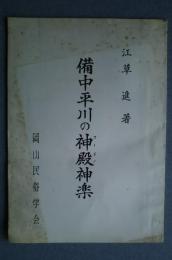 江草進著
備中平川の神殿神楽
岡山民俗学会